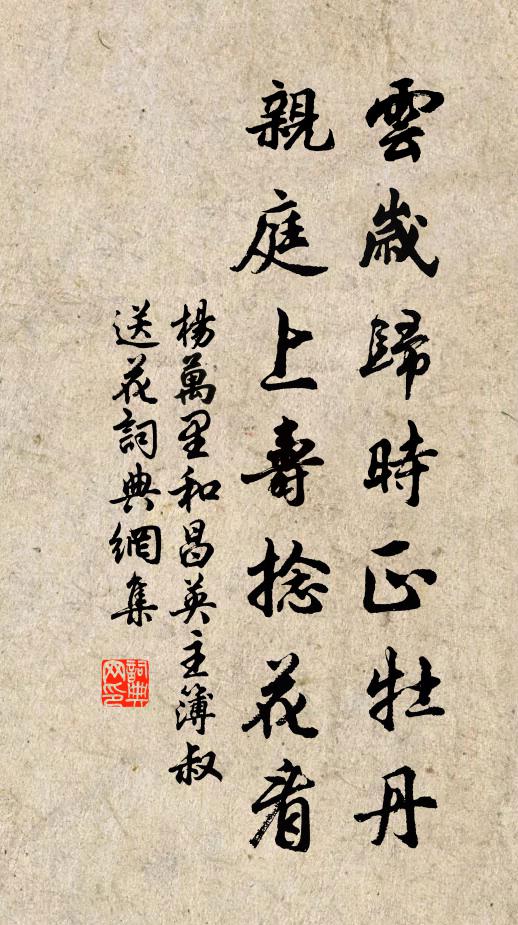 雲歲歸時正牡丹
親庭上壽捻花看
楊萬里和昌英主簿叔
送花詞典網集
詞典
网印